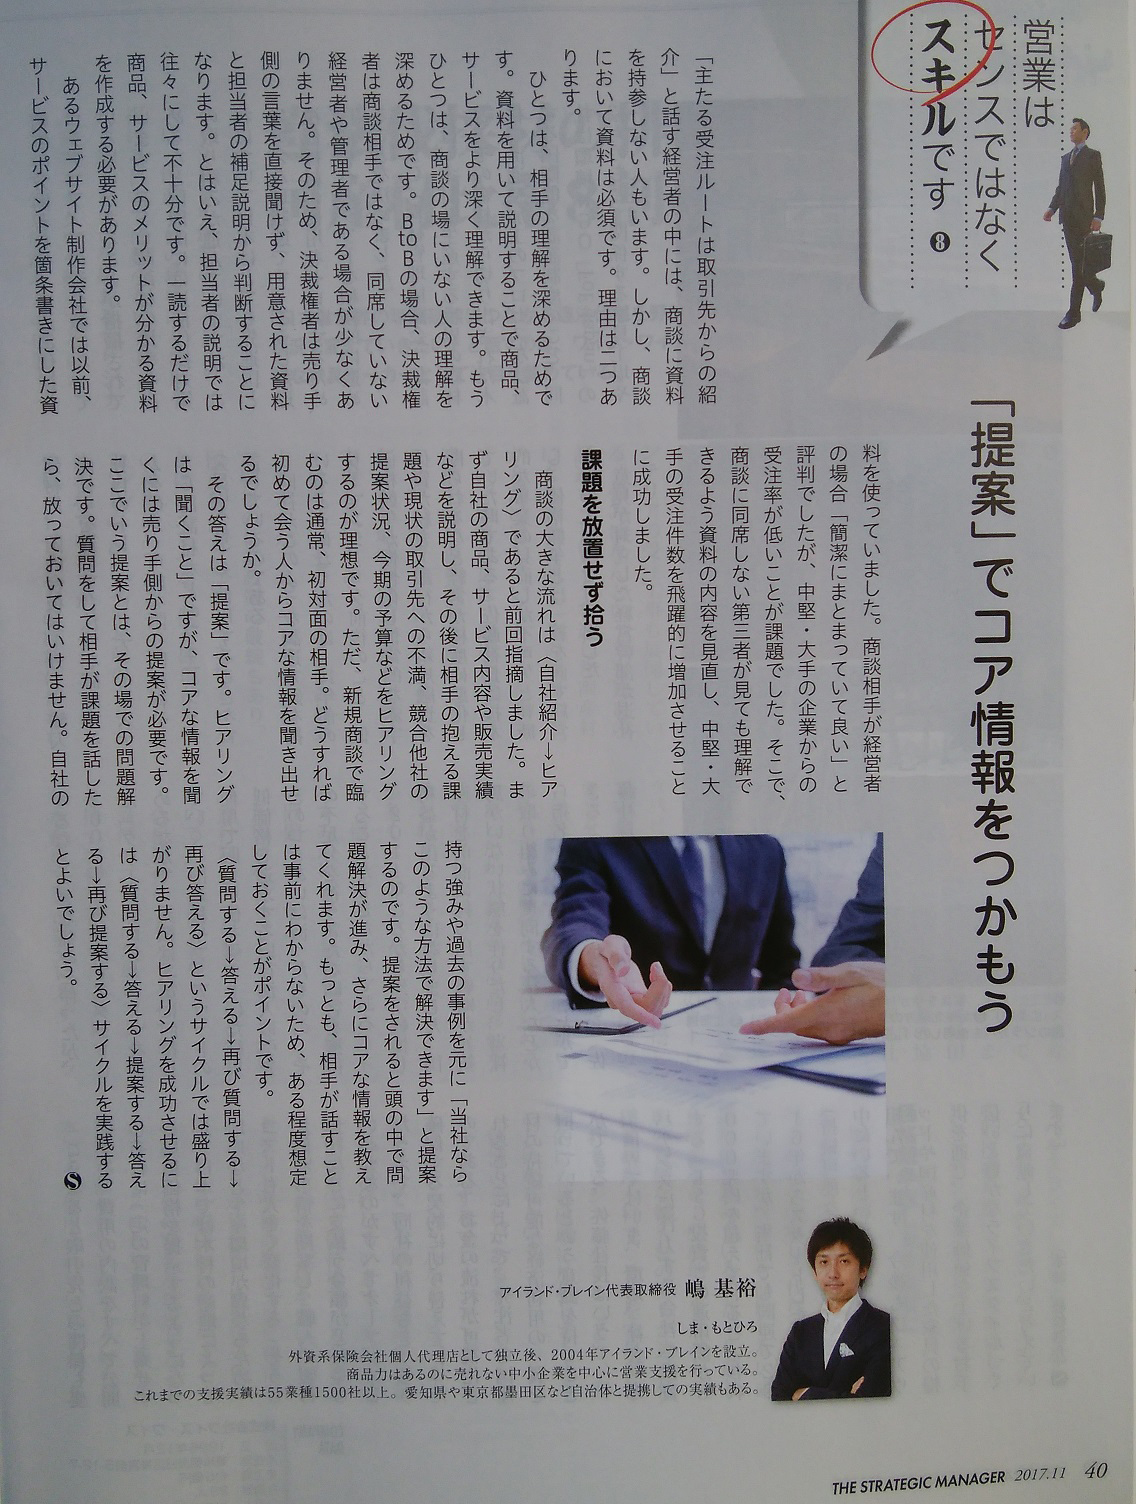 営業は
センスではなく
スキルです ❽
「提案」でコア情報をつかもう
「主たる受注ルートは取引先からの紹
介」と話す経営者の中には、商談に資料
を持参しない人もいます。しかし、商談
において資料は必須です。理由は二つあ
ります。
ひとつは、相手の理解を深めるためで
す。資料を用いて説明することで商品、
サービスをより深く理解できます。もう
ひとつは、商談の場にいない人の理解を
深めるためです。BtoBの場合、決裁権
者は商談相手ではなく、同席していない
経営者や管理者である場合が少なくあ
りません。そのため、決裁権者は売り手
側の言葉を直接聞けず、用意された資料
と担当者の補足説明から判断することに
なります。とはいえ、担当者の説明では
往々にして不十分です。一読するだけで
商品、サービスのメリットが分かる資料
を作成する必要があります。
あるウェブサイト制作会社では以前、
サービスのポイントを箇条書きにした資
料を使っていました。商談相手が経営者
の場合「簡潔にまとまっていて良い」と
評判でしたが、中堅・大手の企業からの
受注率が低いことが課題でした。そこで、
商談に同席しない第三者が見ても理解で
きるよう資料の内容を見直し、中堅・大
手の受注件数を飛躍的に増加させること
に成功しました。
課題を放置せず拾う
商談の大きな流れは〈自社紹介→ヒア
リング〉であると前回指摘しました。ま
ず自社の商品、サービス内容や販売実績
などを説明し、その後に相手の抱える課
題や現状の取引先への不満、競合他社の
提案状況、今期の予算などをヒアリング
するのが理想です。ただ、新規商談で臨
むのは通常、初対面の相手。どうすれば
初めて会う人からコアな情報を聞き出せ
るでしょうか。
その答えは「提案」です。ヒアリング
は「聞くこと」ですが、コアな情報を聞
くには売り手側からの提案が必要です。
ここでいう提案とは、その場での問題解
決です。質問をして相手が課題を話した
ら、放っておいてはいけません。自社の
持つ強みや過去の事例を元に「当社なら
このような方法で解決できます」と提案
するのです。提案をされると頭の中で問
題解決が進み、さらにコアな情報を教え
てくれます。もっとも、相手が話すこと
は事前にわからないため、ある程度想定
しておくことがポイントです。
〈質問する→答える→再び質問する→
再び答える〉というサイクルでは盛り上
がりません。ヒアリングを成功させるに
は〈質問する→答える→提案する→答え
る→再び提案する〉サイクルを実践する
とよいでしょう。
S
アイランド・ブレイン代表取締役 嶋 基裕
しま・もとひろ
外資系保険会社個人代理店として独立後、2004年アイランド・ブレインを設立。
商品力はあるのに売れない中小企業を中心に営業支援を行っている。
これまでの支援実績は55業種1500社以上。愛知県や東京都墨田区など自治体と提携しての実績もある。
THE STRATEGIC MANAGER 2017.11 40